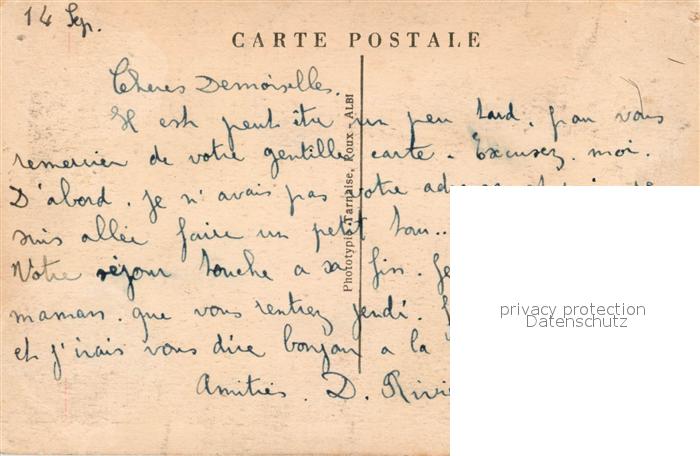 14 Sep.
CARTE POSTALE
Cheres Demoiselles.
Il est peut être un peu tard. pour vous
remercier de votre gentille carte. Excusez. moi.
D'abord. je n'avais pas votre
suis allée faire un petit tour..
Votre séjour touche a sa fin. Je
maman. que vous rentrez jeudi.
et j'irais vous dire bonjour a la
Amitiés. D.
Phototypie Tarnaise, Roux - ALBI
privacy protection
Datenschutz